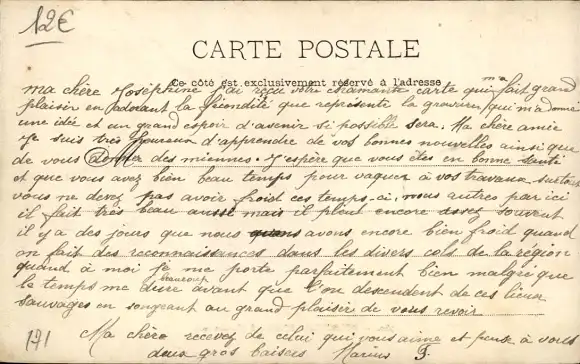 12€
CARTE POSTALE
Ce côté est exclusivement réservé à l'adresse
ma chère Joséphine j'ai reçu votre charmante carte qui m'a fait grand
plaisir en adorant la fécondité que représente la gravure, qui m'a donné
une idée et un grand espoir d'avenir si possible sera. Ma chère amie
Je suis très heureux d'apprendre de vos bonnes nouvelles ainsi que
de vous donner des miennes. J'espère que vous êtes en bonne santé
et que vous avez bien beau temps pour vaquer à vos travaux surtout
vous ne devez pas avoir froid ces temps-ci, nous autres par ici
il fait très beau aussi mais il pleut encore assez souvent
il y a des jours que nous avons encore bien froid quand
on fait des reconnaissances dans les divers cols de la région
quand à moi je me porte parfaitement bien malgré que
le temps me dure beaucoup avant que l'on descendent de ces lieux
sauvages en songeant au grand plaisir de vous revoir
171 Ma chère recevez de celui qui vous aime et pense à vous
doux gros baisers Marius F.